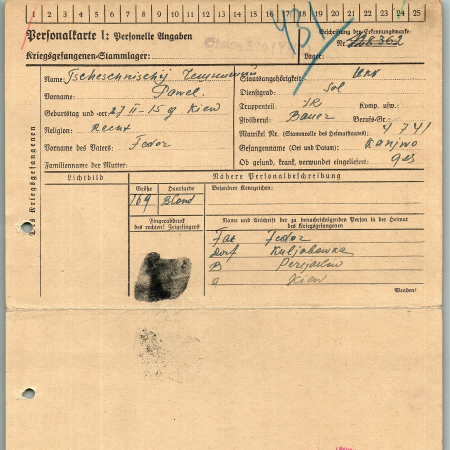 1 2 3 4 5 6 7 8 9 10 11 12 13 14 15 16 17 18 19 20 21 22 23 24 25
Personalkarte I: Personelle Angaben
Beschriftung der Erkennungsmarke
Nr.
Kriegsgefangenen-Stammlager:
Lager:
931
Des Kriegsgefangenen
Name: Tscheschnischij
Staatsangehörigkeit: Ukr
Vorname: Pawel.
Dienstgrad: Sol
Truppenteil: IR Komp. usw.:
Geburtstag und -ort: 27 II-15 g Kiew
Zivilberuf: Bauer Berufs-Gr.:
Religion:
Matrikel Nr. (Stammrolle des Heimatstaates): 4741
Vorname des Vaters: Fedor
Gefangennahme (Ort und Datum): Kanjwo
Familienname der Mutter:
Ob gesund, krank, verwundet eingeliefert: ges
Lichtbild
Nähere Personalbeschreibung
Größe Haarfarbe Besondere Kennzeichen:
169 Blond
Fingerabdruck
des rechten! Zeigefingers
Name und Anschrift der zu benachrichtigenden Person in der Heimat
des Kriegsgefangenen
Fedor
Dorf Kuljabowka
Perejaslaw
Kiew
Wenden!